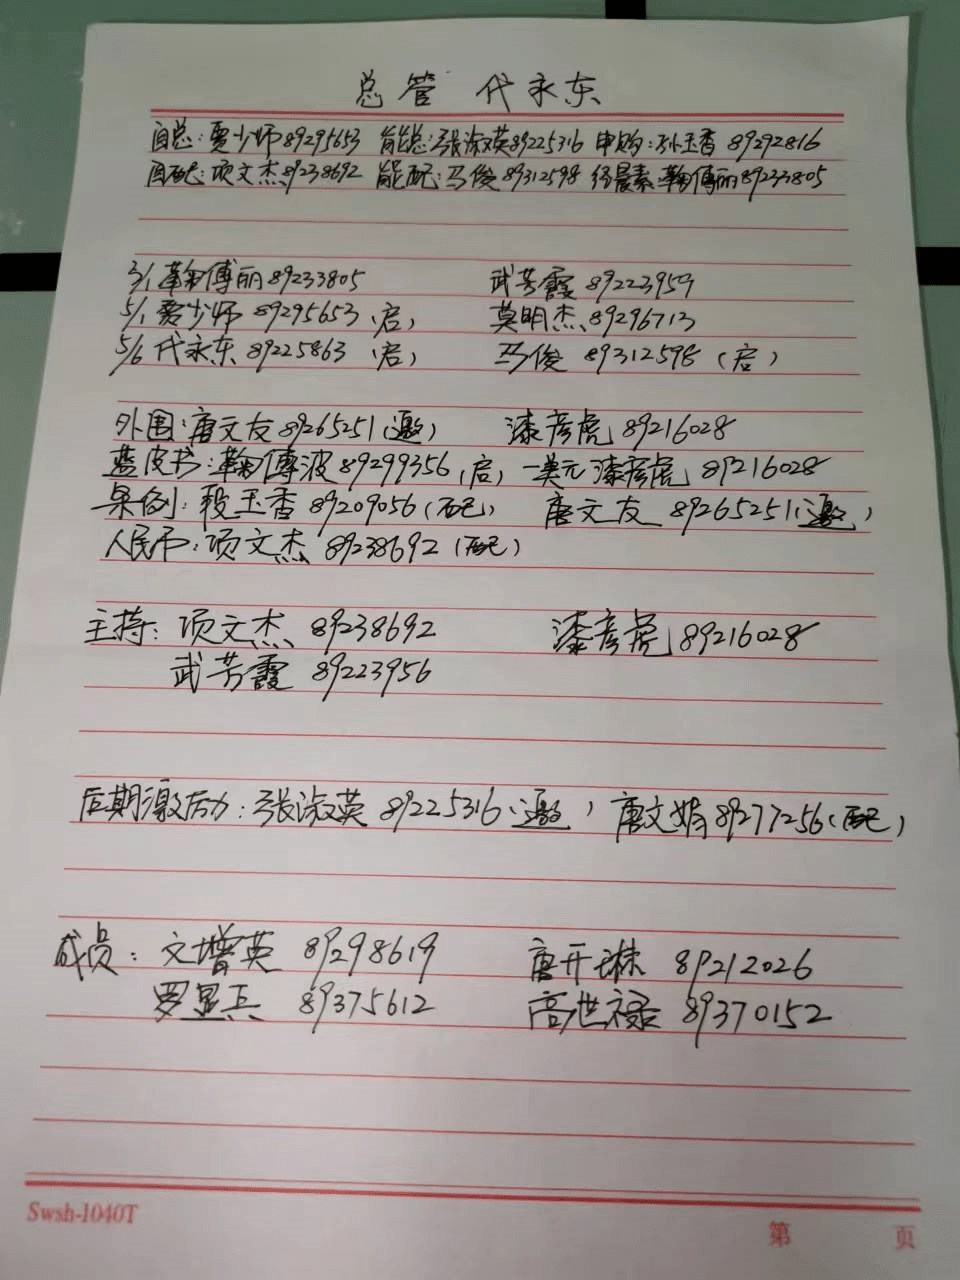 总管 代永东
自总:贾少师89295653 能总:张淑英89225316 申购:孙玉香 89292816
自配:项文杰89238692 能配:马俊89312598 经晨素:鞠傅丽89233805
3/1 鞠傅丽89233805 武芳霞 89223959
5/1 贾少师 89295653(启) 莫明杰89296713
5/6 代永东 89225863 (启) 马俊 89312598(启)
外围:唐文友89265251(邀) 漆彦虎 89216028
蓝皮书:鞠傅波89299356(启) 一美元 漆彦虎 89216028
案例:段玉香 89209056(配) 唐文友 89265251(邀)
人民币:项文杰 89238692(配)
主持:项文杰 89238692 漆彦虎 89216028
武芳霞 89223956
后期激励:张淑英 89225316(邀) 唐文娟89277256(配)
成员:文增英 89298619 唐开琳 89212026
罗显兵 89375612 高世禄 89370152
Swsh-1040T
第 页